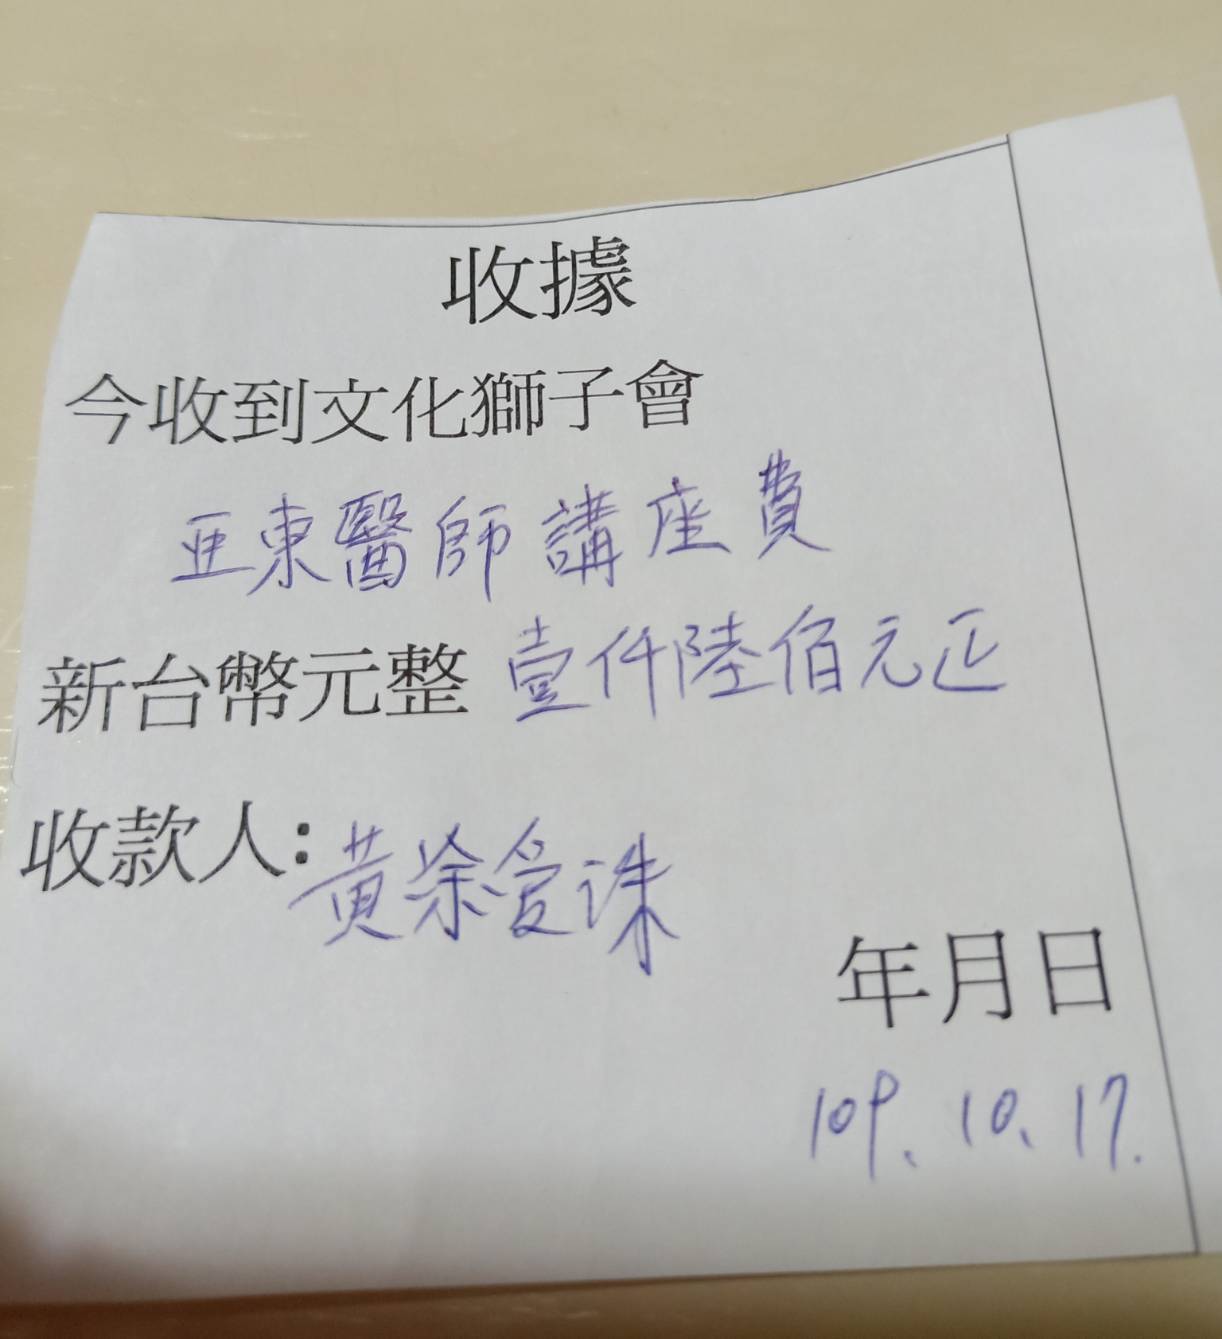 收據
今收到文化獅子會
亚東醫師講座費
新台幣元整 壹仟陸佰元正
收款人: 黃涂愛珠
年月日
109、10、17.